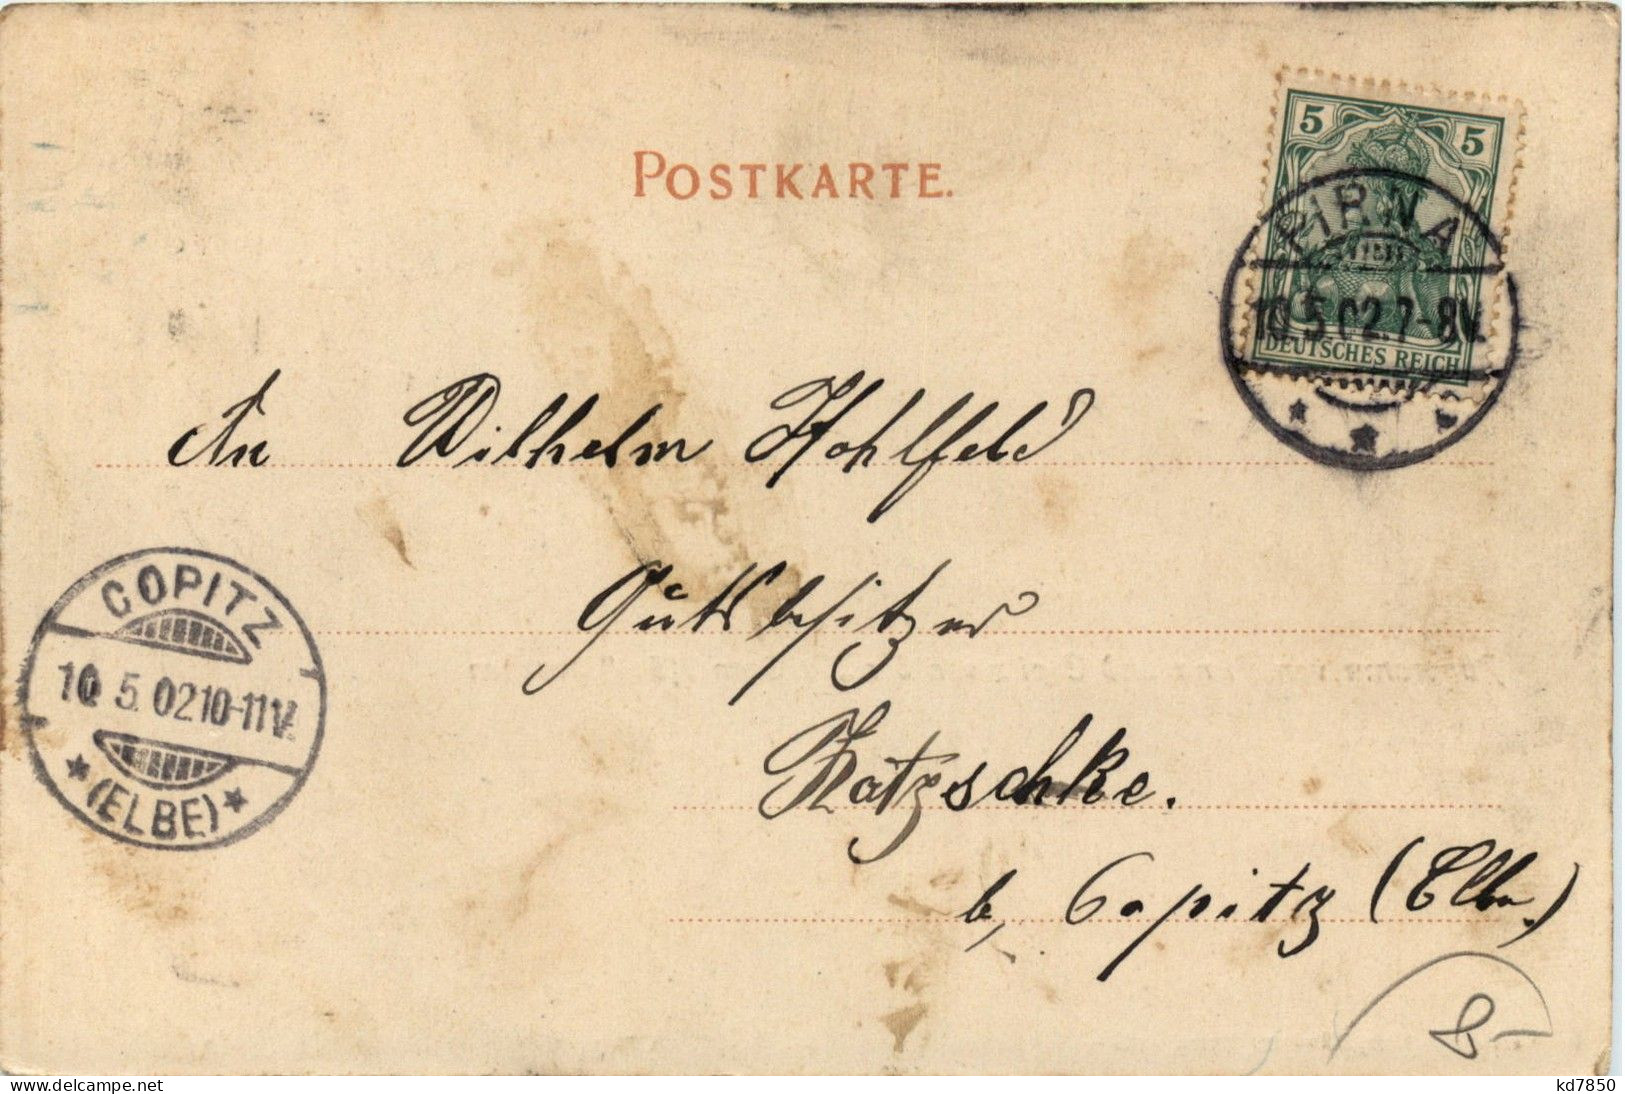 POSTKARTE.
5 5
PIRNA
10.5.02.7-8V.
DEUTSCHES REICH
An Wilhelm Hohlfeld
Gutsbesitzer
COPITZ
10.5.02 10-11V.
(ELBE)
Zatzschke.
b, Copitz (Elbe.)
8-
kd7850